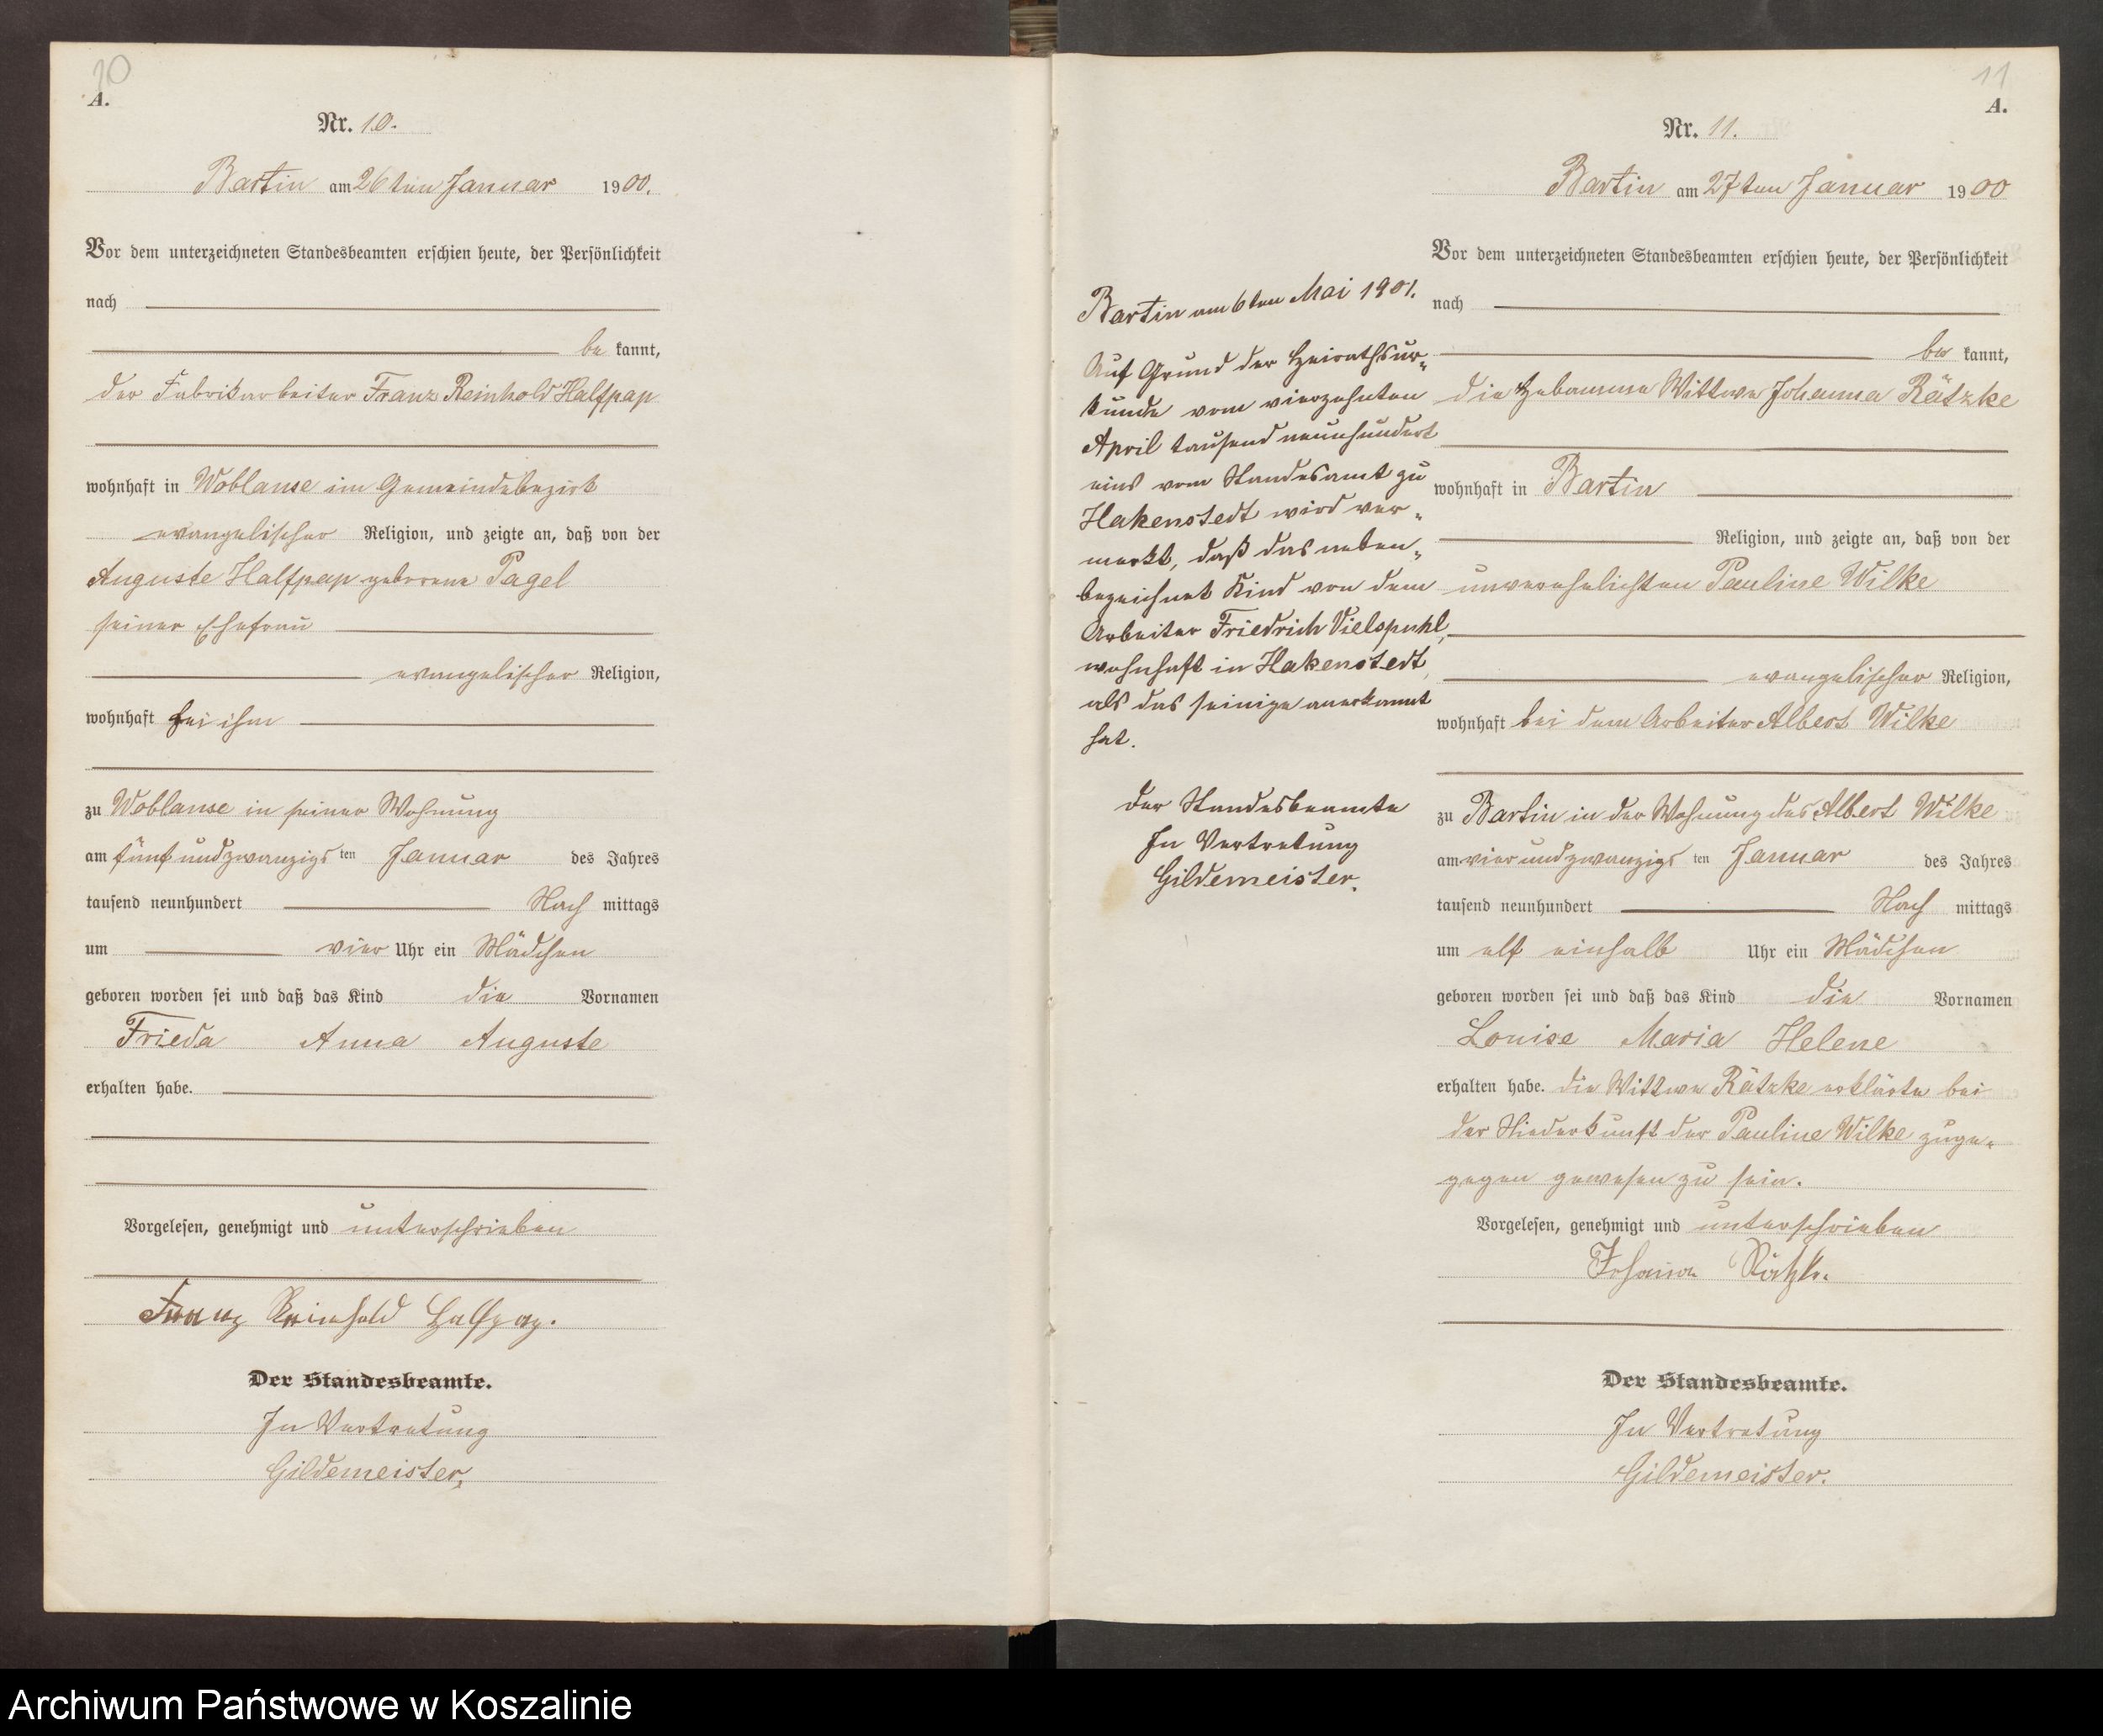 10
A.
Nr. 10.
Bartin am 26ten Januar 1900.
Vor dem unterzeichneten Standesbeamten erschien heute, der Persönlichkeit
nach
be kannt,
der Fabrikarbeiter Franz Reinhold Halfpap
wohnhaft in Woblanse im Gemeindebezirk
evangelischer Religion, und zeigte an, daß von der
Auguste Halfpap geborene Pagel
seiner Ehefrau
evangelischer Religion,
wohnhaft bei ihm
zu Woblanse in seiner Wohnung
am fünf und zwanzigs ten Januar des Jahres
tausend neunhundert Nach mittags
um vier Uhr ein Mädchen
geboren worden sei und daß das Kind die Vornamen
Frieda Anna Auguste
erhalten habe.
Vorgelesen, genehmigt und unterschrieben
Franz Reinhold Halfpap.
Der Standesbeamte.
In Vertretung
Gildemeister.
11
A.
Nr. 11.
Bartin am 27ten Januar 1900
Vor dem unterzeichneten Standesbeamten erschien heute, der Persönlichkeit
nach
be kannt,
die Hebamme Wittwe Johanna Rätzke
wohnhaft in Bartin
Religion, und zeigte an, daß von der
unverehelichten Pauline Wilke
evangelischer Religion,
wohnhaft bei dem Arbeiter Albert Wilke
zu Bartin in der Wohnung des Albert Wilke
am vier und zwanzigs ten Januar des Jahres
tausend neunhundert Nach mittags
um elf einhalb Uhr ein Mädchen
geboren worden sei und daß das Kind die Vornamen
Louise Maria Helene
erhalten habe. Die Wittwe Rätzke erklärte bei
der Niederkunft der Pauline Wilke zuge-
gegen gewesen zu sein.
Vorgelesen, genehmigt und unterschrieben
Johanna Rätzke.
Der Standesbeamte.
In Vertretung
Gildemeister.
Bartin am 6ten Mai 1901.
Auf Grund der Heirathsur-
kunde vom vierzehnten
April tausend neunhundert
eins vom Standesamt zu
Hakenstedt wird ver-
merkt, daß das neben-
bezeichnet Kind von dem
Arbeiter Friedrich Vielspuhl,
wohnhaft in Hakenstedt,
als das seinige anerkannt
hat.
Der Standesbeamte
In Vertretung
Gildemeister.
Archiwum Państwowe w Koszalinie